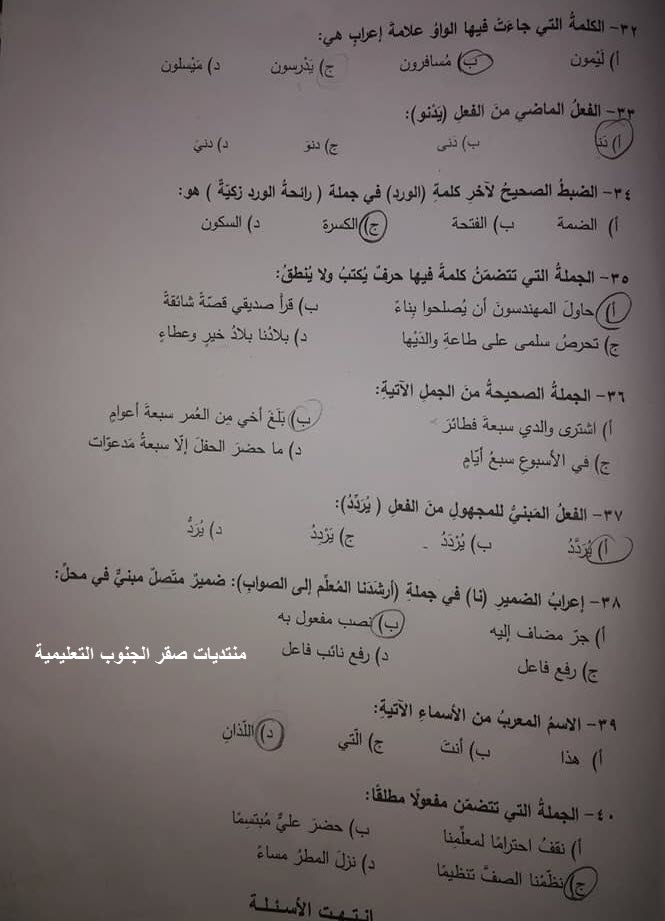 ٣٢- الكلمةُ التي جاءَتْ فيها الواوُ علامةَ إعرابٍ هي:
أ) لَيْمون ب) مُسافرون ج) يَدْرسون د) مَيْسلون
٣٣- الفعلُ الماضي منَ الفعلِ (يَدْنو):
أ) دَنا ب) دَنى ج) دنوَ د) دنيَ
٣٤- الضبطُ الصحيحُ لآخرِ كلمةِ (الورد) في جملة ( رائحةُ الورد زكيّةٌ ) هو:
أ) الضمة ب) الفتحة ج) الكسرة د) السكون
٣٥- الجملةُ التي تتضمّنُ كلمةً فيها حرفٌ يُكتبُ ولا يُنطقُ:
أ) حاولَ المهندسونَ أن يُصلحوا بِناءً ب) قرأَ صديقي قصّةً شائقةً
ج) تحرصُ سلمى على طاعةِ والدَيْها د) بلادُنا بلادُ خيرٍ وعطاءٍ
٣٦- الجملةُ الصحيحةُ منَ الجملِ الآتيةِ:
أ) اشترى والدي سبعةَ فطائرَ ب) بَلَغَ أخي مِن العُمر سبعةَ أعوامٍ
ج) في الأسبوعِ سبعُ أيّامٍ د) ما حضرَ الحفلَ إلّا سبعةُ مَدعوّات
٣٧- الفعلُ المَبنيُّ للمجهولِ منَ الفعلِ ( يُرَدِّدُ):
أ) يُرَدَّدُ ب) يُرْدَدُ ج) يَرْدِدُ د) يُرَدُّ
٣٨- إعرابُ الضميرِ (نا) في جملةِ (أرشَدَنا المُعلّم إلى الصوابِ): ضميرٌ متّصلٌ مبنيٌّ في محلِّ:
أ) جرّ مضاف إليه ب) نصب مفعول به
ج) رفع فاعل د) رفع نائب فاعل
منتديات صقر الجنوب التعليمية
٣٩- الاسمُ المعربُ من الأسماءِ الآتيةِ:
أ) هذا ب) أنتَ ج) الّتي د) اللّذانِ
٤٠- الجملةُ التي تتضمّن مفعولًا مطلقًا:
أ) نقفُ احترامًا لمعلّمِنا ب) حضرَ عليٌّ مُبتسِمًا
ج) نظّمْنا الصفَّ تنظيمًا د) نزلَ المطرُ مساءً
انتهت الأسئلة